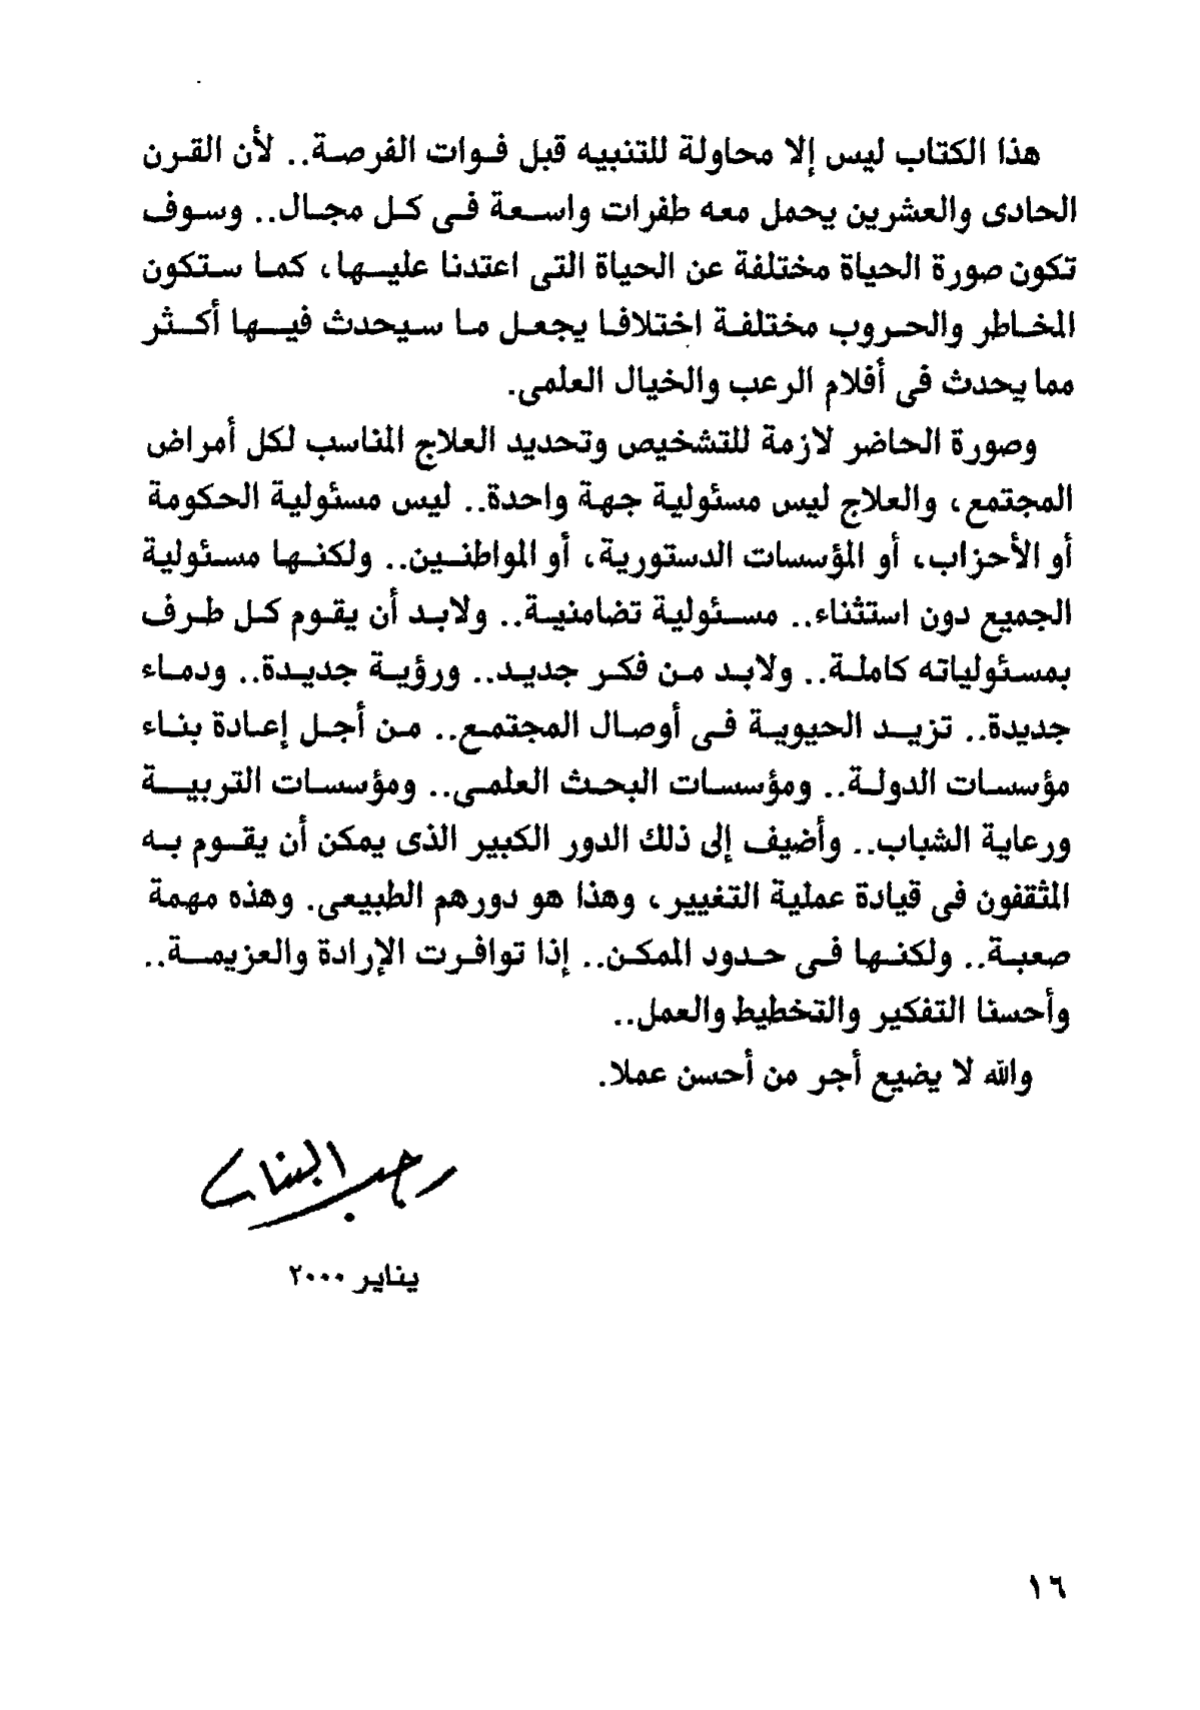 هذا الكتاب ليس إلا محاولة للتنبيه قبل فوات الفرصة.. لأن القرن
الحادى والعشرين يحمل معه طفرات واسعة فى كل مجال.. وسوف
تكون صورة الحياة مختلفة عن الحياة التى اعتدنا عليها، كما ستكون
المخاطر والحروب مختلفة اختلافا يجعل ما سيحدث فيها أكثر
مما يحدث فى أفلام الرعب والخيال العلمى.
وصورة الحاضر لازمة للتشخيص وتحديد العلاج المناسب لكل أمراض
المجتمع، والعلاج ليس مسئولية جهة واحدة.. ليس مسئولية الحكومة
أو الأحزاب، أو المؤسسات الدستورية، أو المواطنين.. ولكنها مسئولية
الجميع دون استثناء.. مسئولية تضامنية.. ولابد أن يقوم كل طرف
بمسئولياته كاملة.. ولابد من فكر جديد.. ورؤية جديدة.. ودماء
جديدة.. تزيد الحيوية فى أوصال المجتمع.. من أجل إعادة بناء
مؤسسات الدولة.. ومؤسسات البحث العلمى.. ومؤسسات التربية
ورعاية الشباب.. وأضيف إلى ذلك الدور الكبير الذى يمكن أن يقوم به
المثقفون فى قيادة عملية التغيير، وهذا هو دورهم الطبيعى. وهذه مهمة
صعبة.. ولكنها فى حدود الممكن.. إذا توافرت الإرادة والعزيمة..
وأحسنا التفكير والتخطيط والعمل..
والله لا يضيع أجر من أحسن عملا.
رجب البنا
يناير ٢٠٠٠
١٦